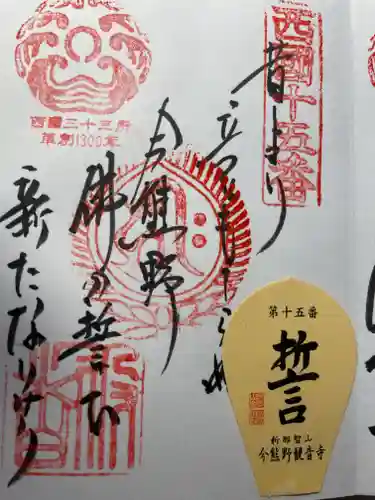 西國十五番
昔より
立つともしらぬ
今熊野
佛の誓ひ
新たなりけり
西國三十三所
草創1300年
第十五番
誓
新那智山
今熊野観音寺